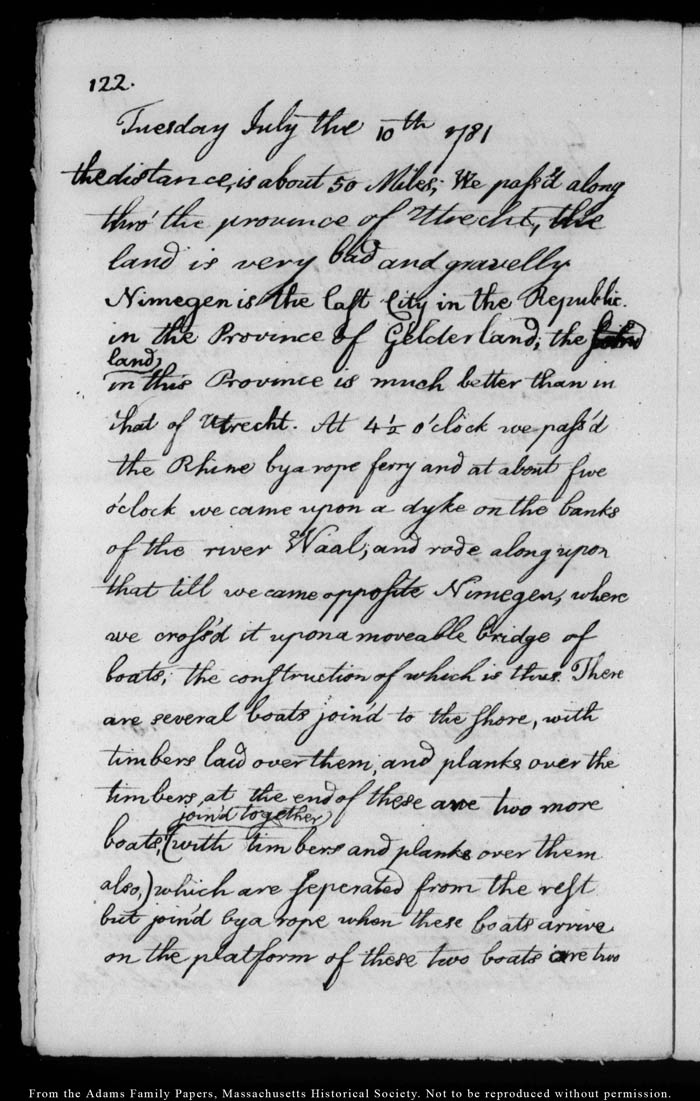 122.
Tuesday July the 10th 1781
the distance, is about 50 Miles; We pass'd along
thro' the province of Utrecht, the
land is very bad and gravelly
Nimegen is the last City in the Republic.
in the Province of Gelderland; the
land,
in this Province is much better than in
that of Utrecht. At 4 1/2 o'clock we pass'd
the Rhine by a rope ferry and at about five
o'clock we came upon a dyke on the banks
of the river Waal; and rode along upon
that till we came opposite Nimegen, where
we cross'd it upon a moveable bridge of
boats; the construction of which is thus. There
are several boats join'd to the shore, with
timbers laid over them, and planks over the
timbers, at the end of these are two more
join'd together
boats, (with timbers and planks over them
also,) which are seperated from the rest
but join'd by a rope when these boats arrive
on the platform of these two boats are two
From the Adams Family Papers, Massachusetts Historical Society. Not to be reproduced without permission.